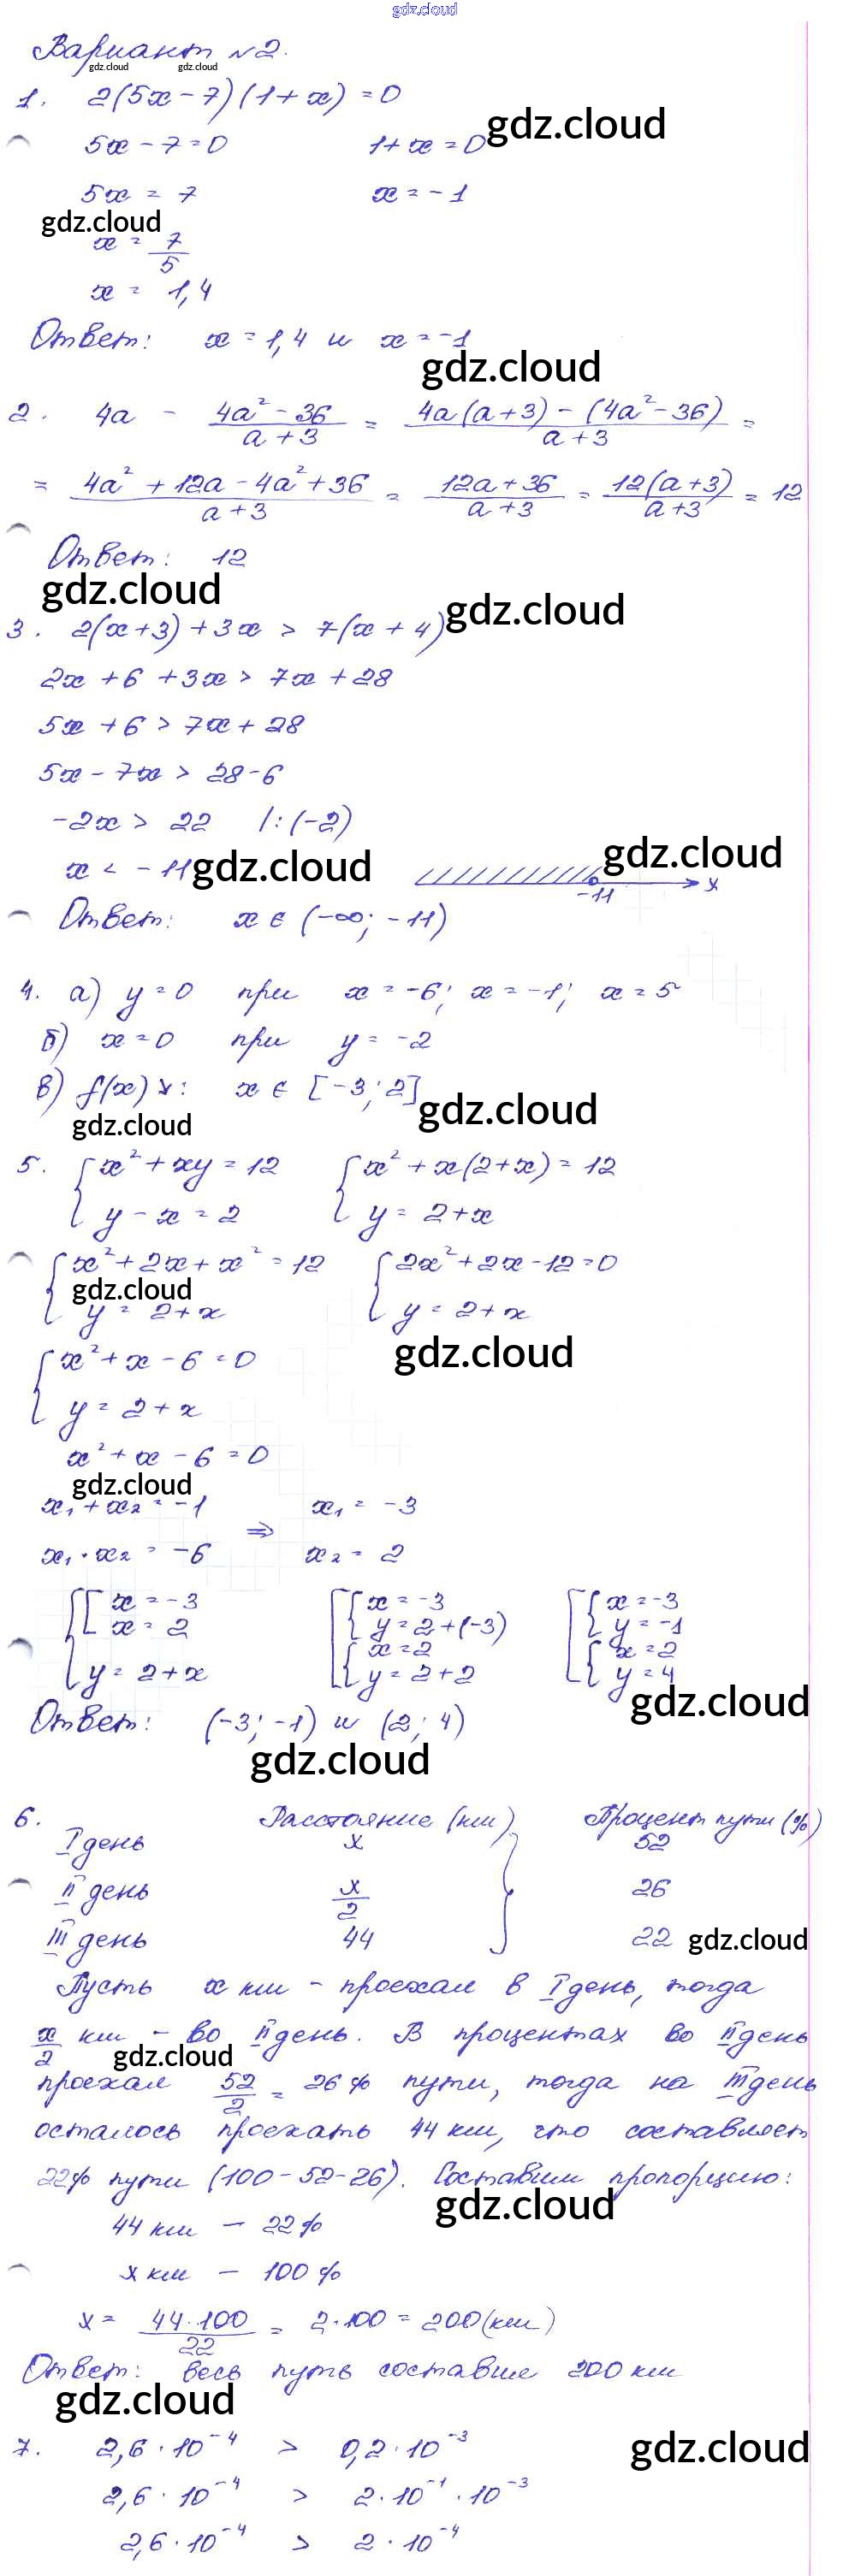 gdz.cloud
Вариант №2.
gdz.cloud gdz.cloud
1. 2(5x - 7)(1 + x) = 0
gdz.cloud
5x - 7 = 0 1 + x = 0
5x = 7 x = -1
gdz.cloud
x = 7/5
x = 1,4
Ответ: x = 1,4 и x = -1
gdz.cloud
2. 4a - (4a² - 36)/(a + 3) = (4a(a + 3) - (4a² - 36))/(a + 3) =
= (4a² + 12a - 4a² + 36)/(a + 3) = (12a + 36)/(a + 3) = 12(a + 3)/(a + 3) = 12
Ответ: 12
gdz.cloud
gdz.cloud
3. 2(x + 3) + 3x > 7(x + 4)
2x + 6 + 3x > 7x + 28
5x + 6 > 7x + 28
5x - 7x > 28 - 6
-2x > 22 |:(-2)
gdz.cloud
x < -11 gdz.cloud
-11 x
Ответ: x ∈ (-∞; -11)
4. а) y = 0 при x = -6; x = -1; x = 5
б) x = 0 при y = -2
в) f(x) ↘: x ∈ [-3; 2]
gdz.cloud
gdz.cloud
5. { x² + xy = 12 { x² + x(2 + x) = 12
y - x = 2 y = 2 + x
{ x² + 2x + x² = 12 { 2x² + 2x - 12 = 0
gdz.cloud
y = 2 + x y = 2 + x
gdz.cloud
{ x² + x - 6 = 0
y = 2 + x
x² + x - 6 = 0
gdz.cloud
x₁ + x₂ = -1 ⇒ x₁ = -3
x₁ · x₂ = -6 x₂ = 2
{ [ x = -3 [ { x = -3 [ { x = -3
x = 2 y = 2 + (-3) y = -1
{ x = 2 { x = 2
y = 2 + x y = 2 + 2 y = 4
gdz.cloud
Ответ: (-3; -1) и (2; 4)
gdz.cloud
6. Расстояние (км) Процент пути (%)
I день x 52
II день x/2 26
III день 44 } 22
gdz.cloud
Пусть x км - проехал в I день, тогда
x/2 км - во II день. В процентах во II день
gdz.cloud
проехал 52/2 = 26% пути, тогда на III день
осталось проехать 44 км, что составляет
22% пути (100 - 52 - 26). Составим пропорцию:
gdz.cloud
44 км - 22%
x км - 100%
x = (44 · 100)/22 = 2 · 100 = 200 (км)
Ответ: весь путь составил 200 км
gdz.cloud
7. 2,6 · 10⁻⁴ > 0,2 · 10⁻³
gdz.cloud
2,6 · 10⁻⁴ > 2 · 10⁻¹ · 10⁻³
2,6 · 10⁻⁴ > 2 · 10⁻⁴